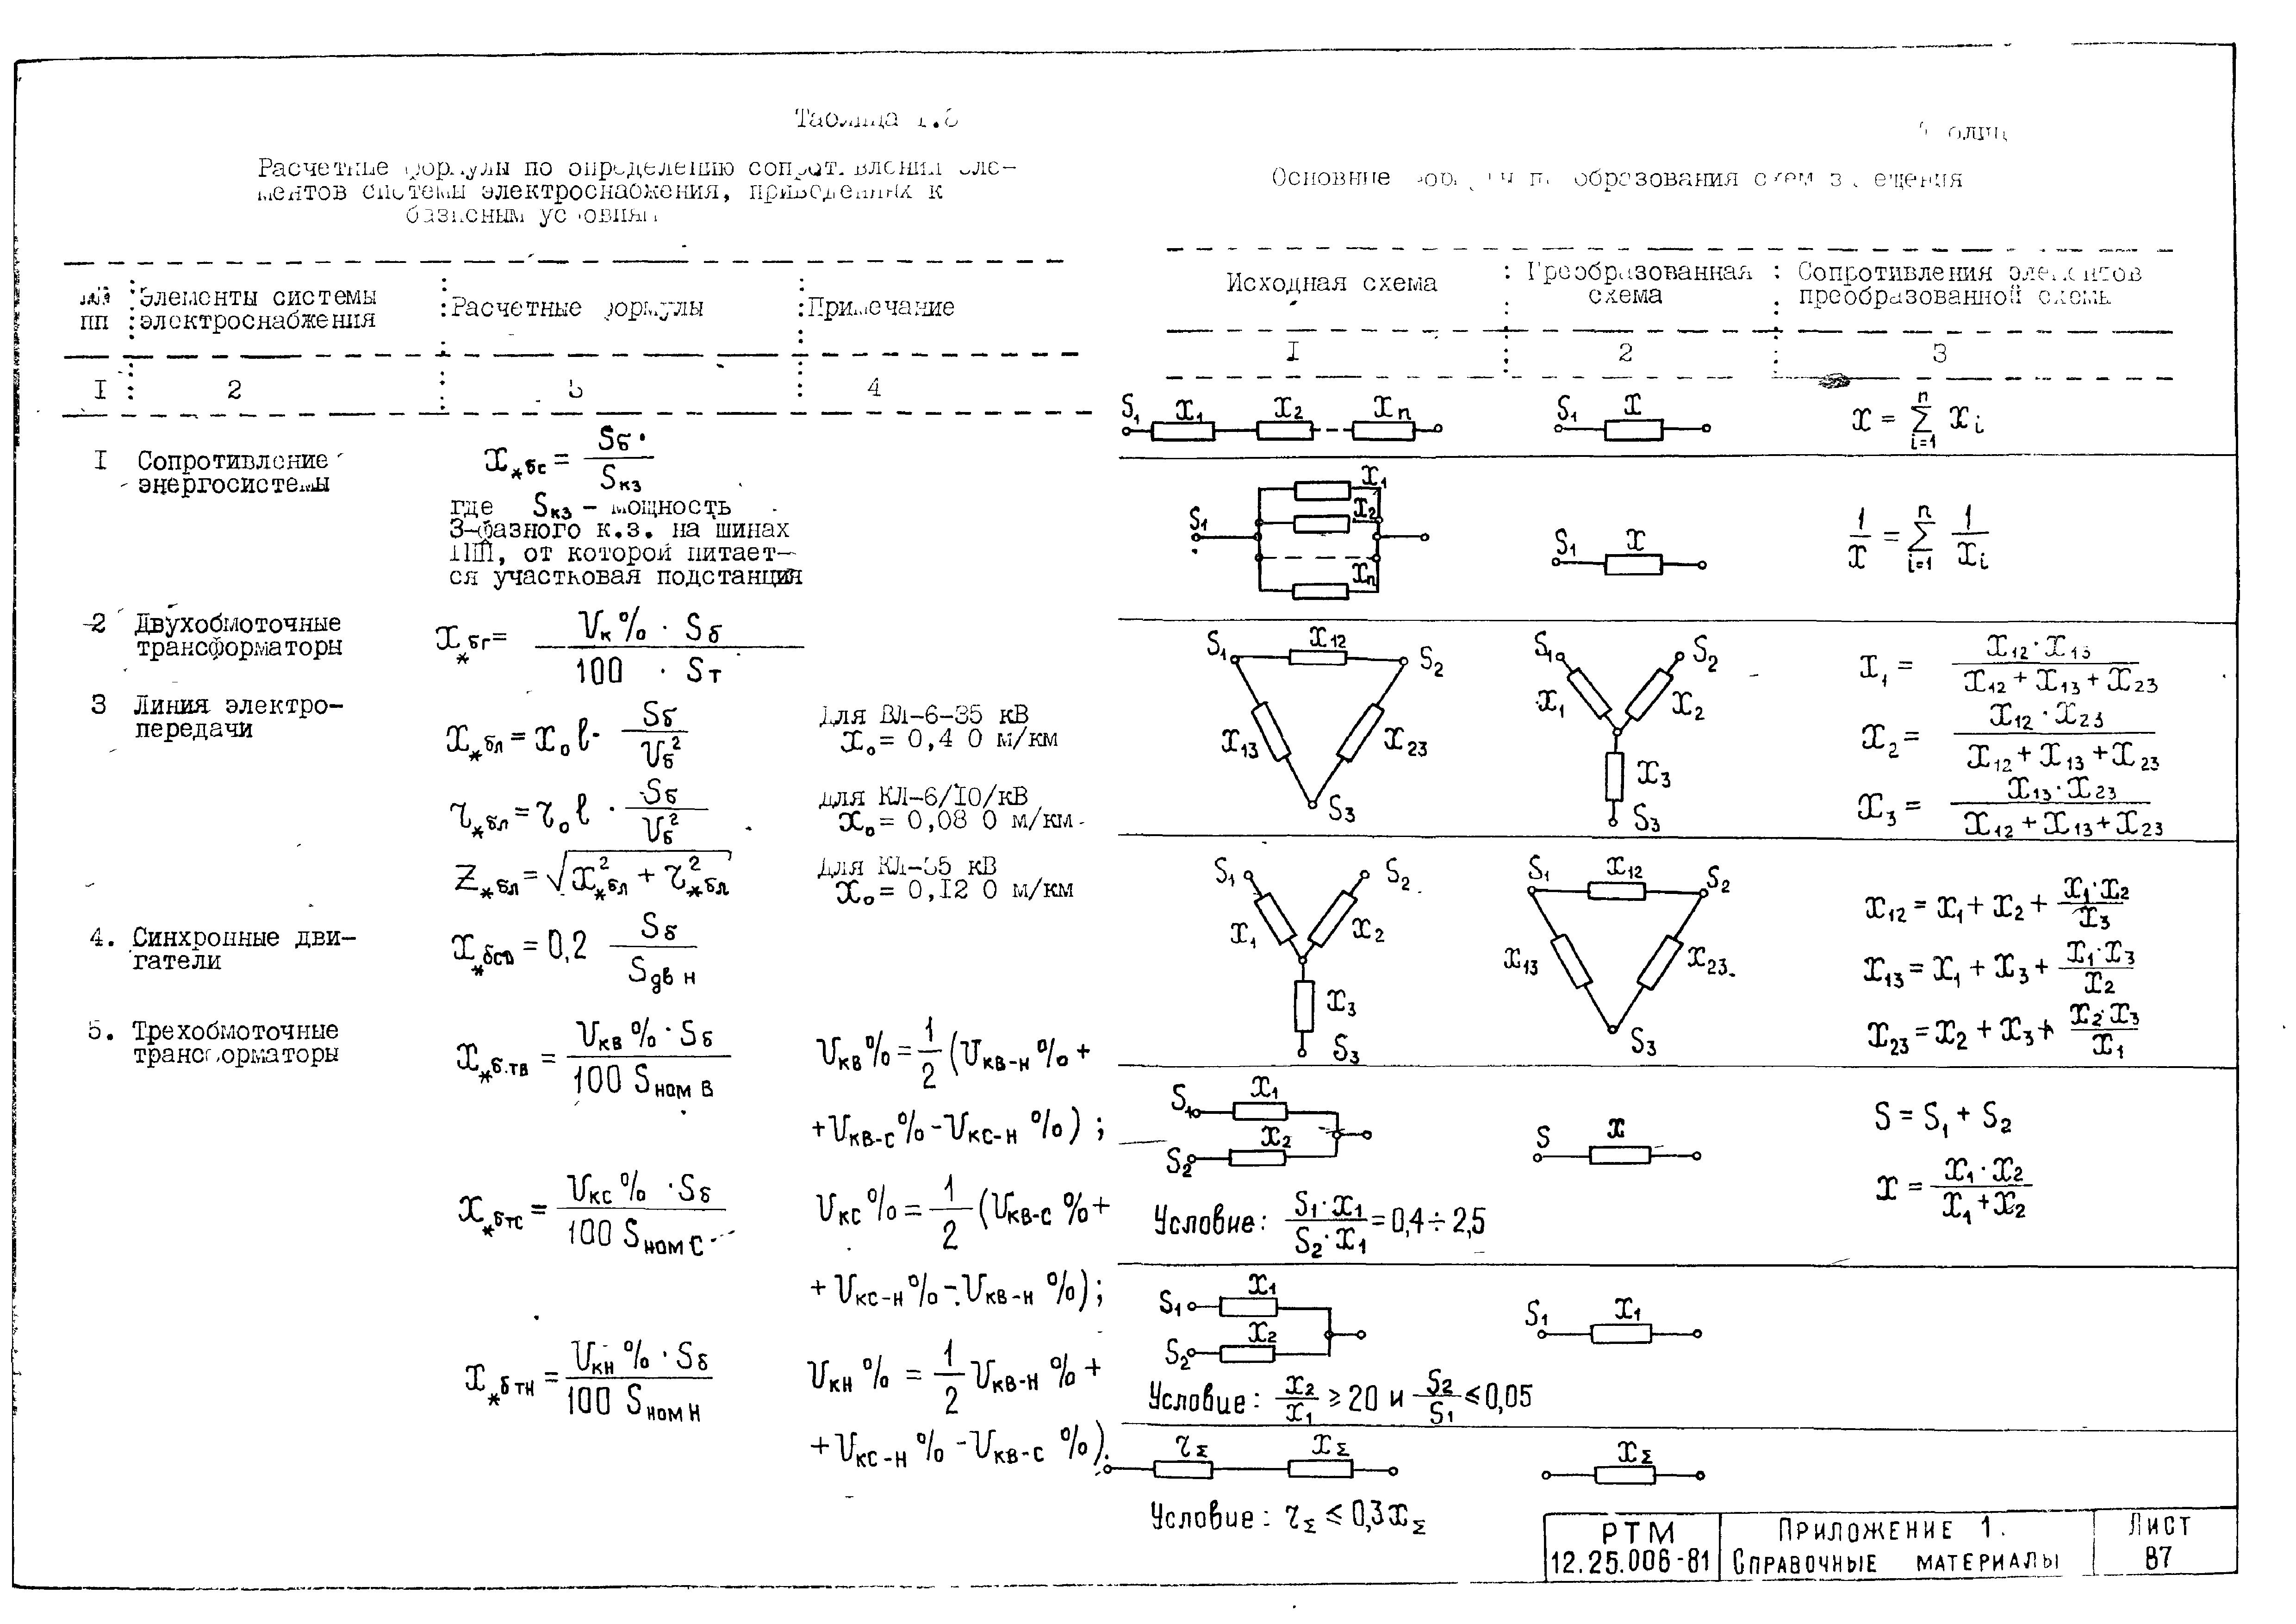 Таблица 1.8
Расчетные формулы по определению сопротивления эле-
ментов системы электроснабжения, приведенных к
базисным условиям
ПП
Элементы системы
электроснабжения
Расчетные формулы
Примечание
I 2 3 4
I Сопротивление
энергосистемы
x*бс = Sб / Sкз
где Sкз – мощность
3-фазного к.з. на шинах
от которой питает-
ся участковая подстанция
2 Двухобмоточные
трансформаторы
x*бт = Uк% · Sб / 100 · Sт
3 Линия электро-
передачи
x*бл = x₀ l · Sб / Uб²
Для ВЛ-6-35 кВ
x₀ = 0,4 0 м/км
r*бл = r₀ l · Sб / Uб²
Для КЛ-6/10/кВ
x₀ = 0,08 0 м/км
Z*бл = √(x²*бл + r²*бл)
Для КЛ-35 кВ
x₀ = 0,12 0 м/км
4. Синхронные дви-
гатели
x*бсд = 0,2 Sб / Sдв н
5. Трехобмоточные
трансформаторы
x*б.тв = Uкв% · Sб / 100 Sном в
Uкв% = 1/2 (Uкв-н% +
+ Uкв-с% - Uкс-н%);
x*бтс = Uкс% · Sб / 100 Sном с
Uкс% = 1/2 (Uкв-с% +
+ Uкс-н% - Uкв-н%);
x*бтн = Uкн% · Sб / 100 Sном н
Uкн% = 1/2 Uкв-н% +
+ Uкс-н% - Uкв-с%).
Основные образования схем замещения
Исходная схема
Преобразованная
схема
Сопротивления элементов
преобразованной схемы
I 2 3
S₁ x₁ x₂ xn
S₁ x
x = Σ xi
n
i=1
S₁ x₁ x₂ xn
S₁ x
1/x = Σ 1/xi
n
i=1
S₁ x₁₂ S₂
x₁₃ x₂₃
S₃
S₁ S₂
x₁ x₂
x₃
S₃
x₁ = x₁₂ · x₁₃ / x₁₂ + x₁₃ + x₂₃
x₂ = x₁₂ · x₂₃ / x₁₂ + x₁₃ + x₂₃
x₃ = x₁₃ · x₂₃ / x₁₂ + x₁₃ + x₂₃
S₁ S₂
x₁ x₂
x₃
S₃
S₁ x₁₂ S₂
x₁₃ x₂₃
S₃
x₁₂ = x₁ + x₂ + x₁ · x₂ / x₃
x₁₃ = x₁ + x₃ + x₁ · x₃ / x₂
x₂₃ = x₂ + x₃ + x₂ · x₃ / x₁
S₁ x₁
S₂ x₂
S x
S = S₁ + S₂
x = x₁ · x₂ / x₁ + x₂
Условие: S₁ · x₁ / S₂ · x₁ = 0,4 ÷ 2,5
S₁ x₁
S₂ x₂
S₁ x₁
Условие: x₂/x₁ ≥ 20 и S₂/S₁ ≤ 0,05
rΣ xΣ
xΣ
Условие: rΣ ≤ 0,3xΣ
РТМ
12.25.006-81
Приложение 1.
Справочные материалы
Лист
87